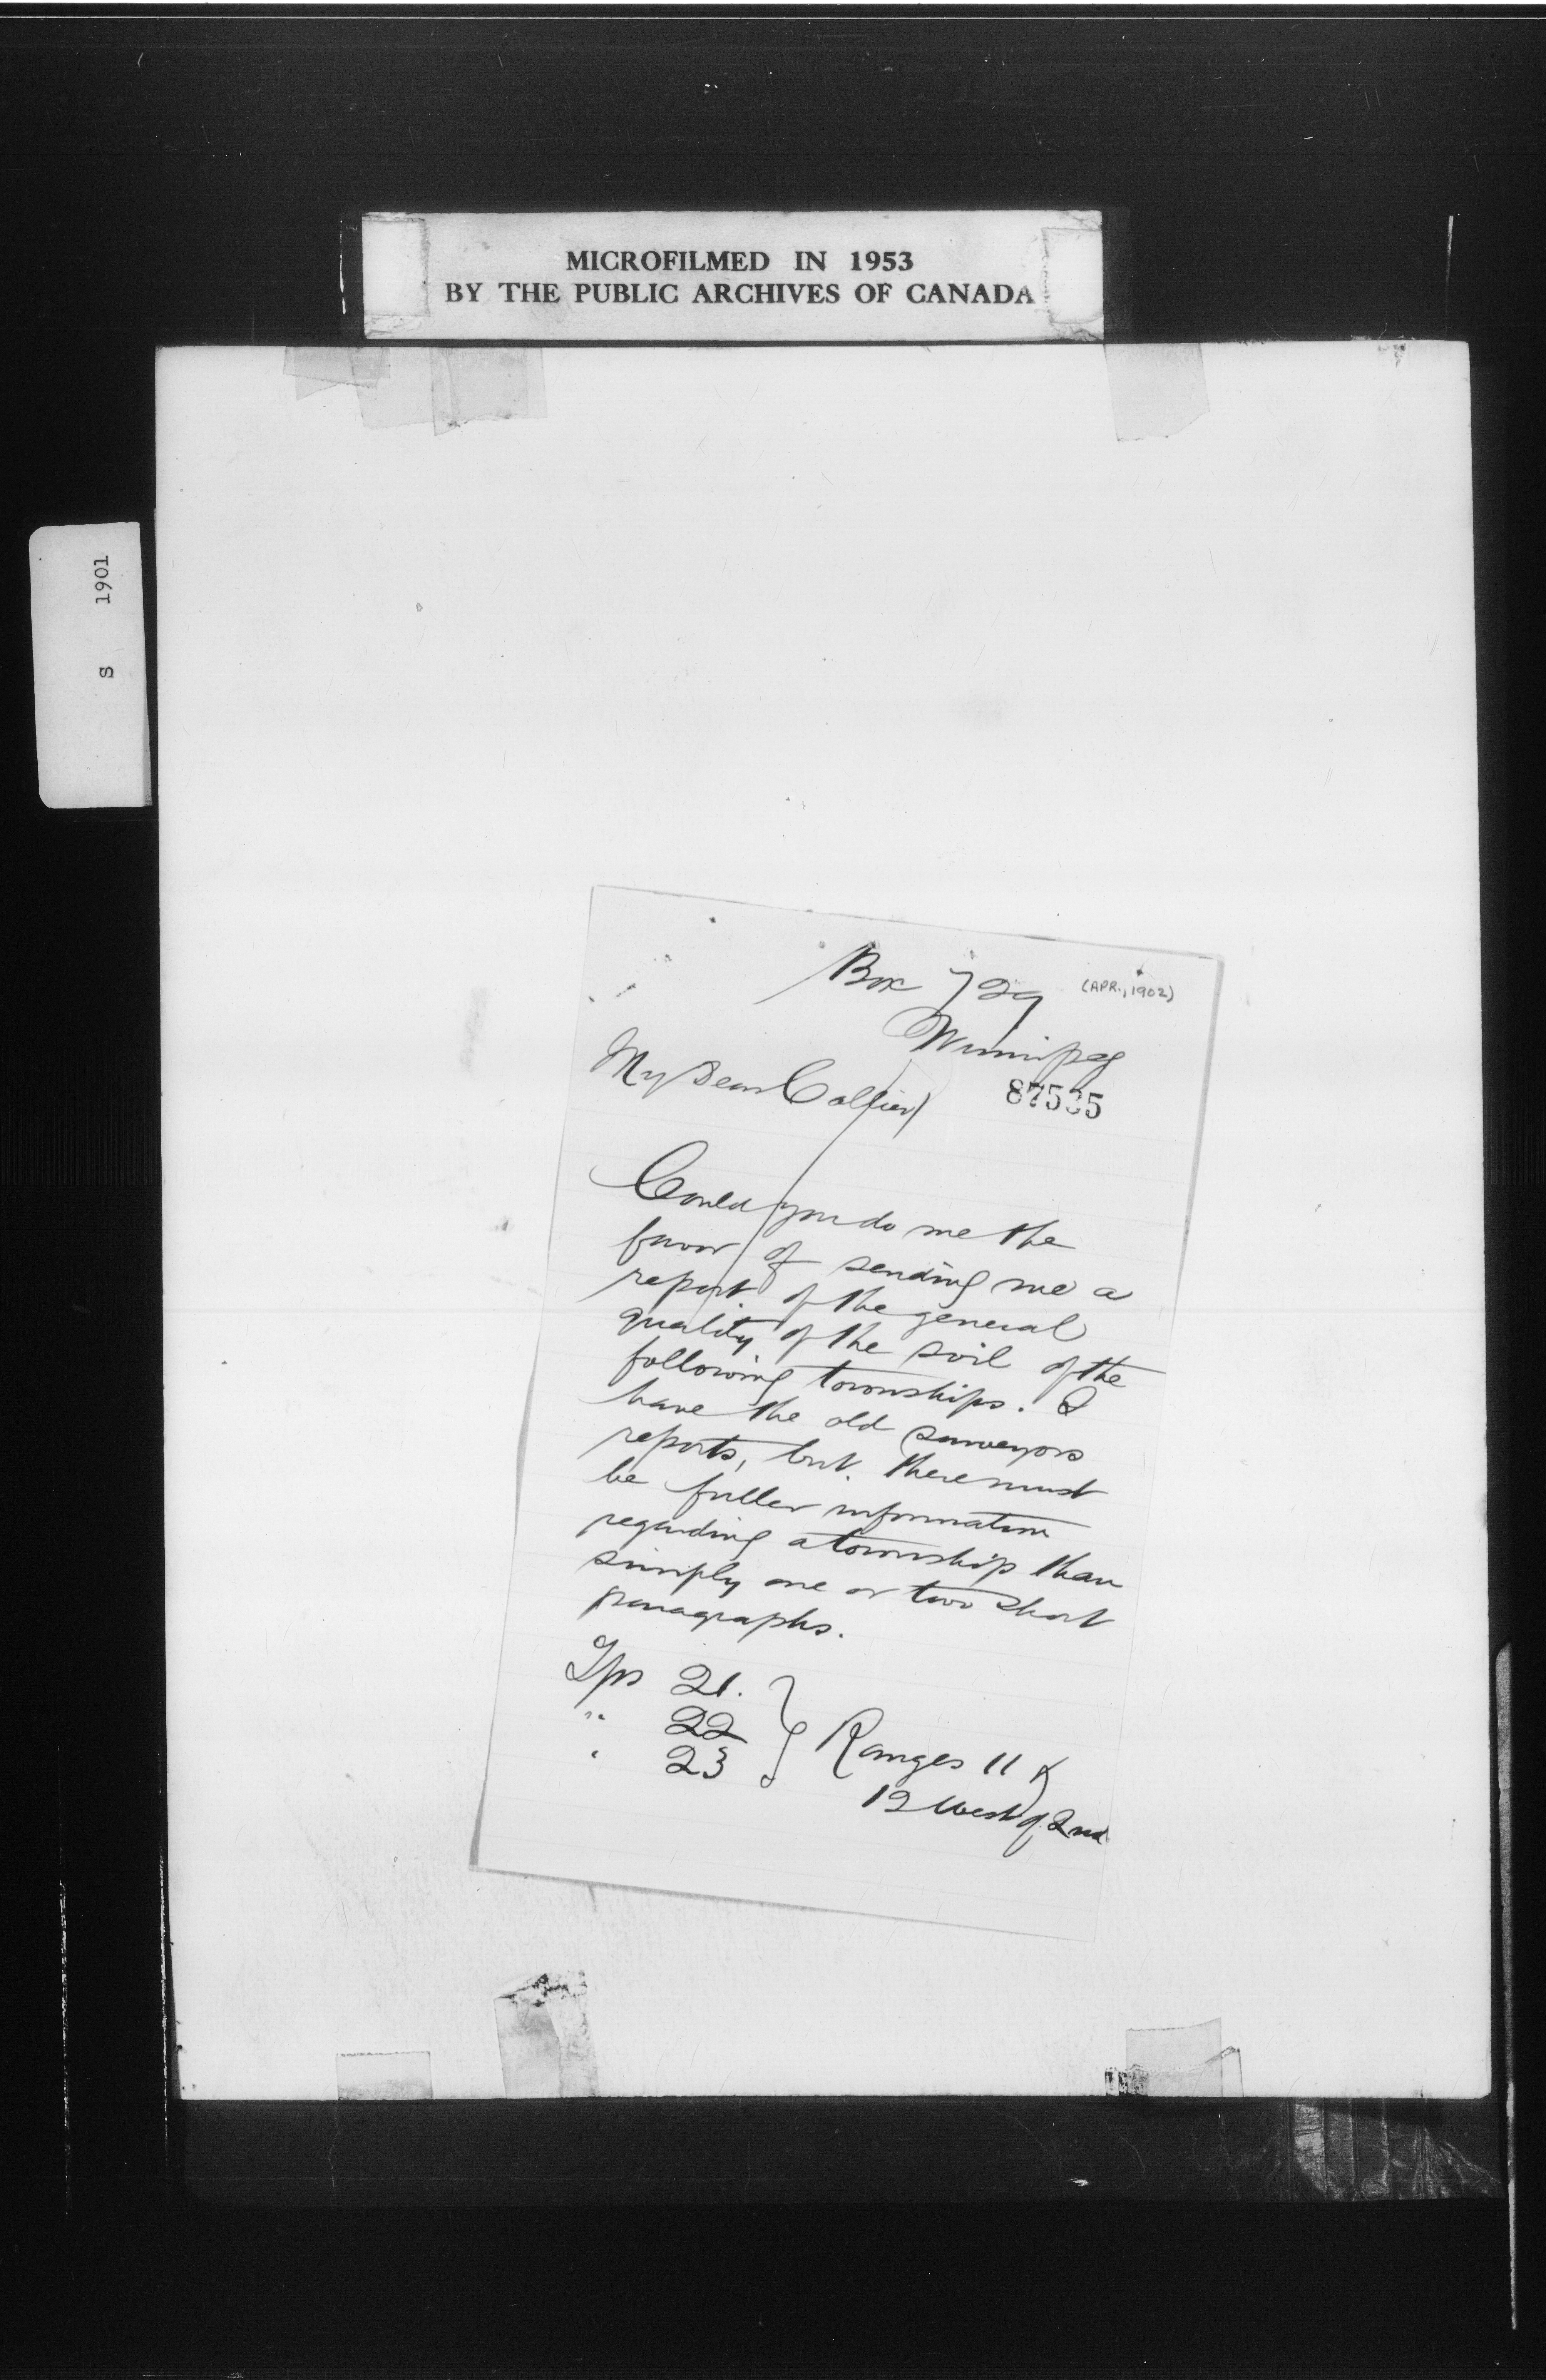 MICROFILMED IN 1953
BY THE PUBLIC ARCHIVES OF CANADA
S 1901
Box 729 (APR., 1902)
Winnipeg
My Dear Collier
Could you do me the
favor of sending me a
report of the general
quality of the soil of the
following townships. I
have the old surveyors
reports, but there must
be fuller information
regarding a township than
simply one or two short
paragraphs.
Tps 21.
" 22
" 23
Ranges 11 &
12 West of 2nd